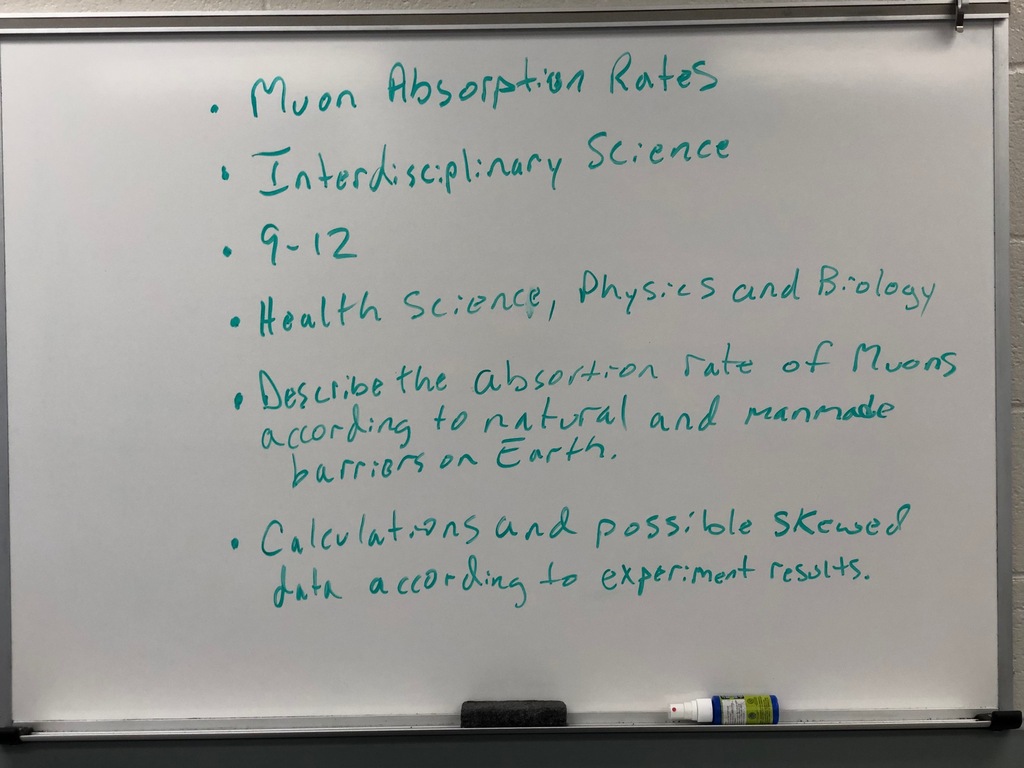 • Muon Absorption Rates
• Interdisciplinary Science
• 9-12
• Health Science, Physics and Biology
• Describe the absortion rate of Muons
according to natural and manmade
barriers on Earth.
• Calculations and possible skewed
data according to experiment results.